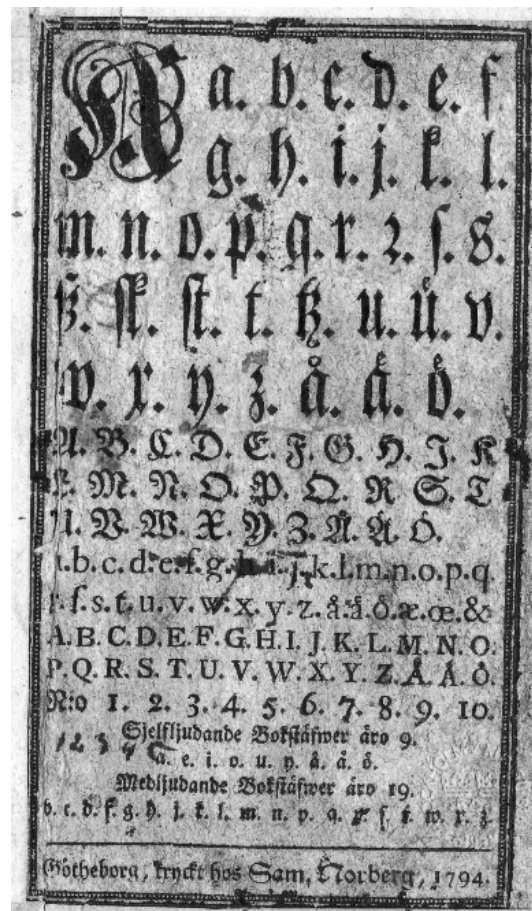 A a. b. c. d. e. f
g. h. i. j. k. l.
m. n. o. p. q. r. ꝛ. ſ. s.
ß. ſk. ſt. t. tz. u. uͤ. v.
w. x. y. z. å. aͤ. oͤ.
A. B. C. D. E. F. G. H. J. K
L. M. N. O. P. Q. R S. T
U. V. W. X. Y. Z. Å. Ä. Ö.
a.b.c.d.e.f.g.h.i.j.k.l.m.n.o.p.q.
r.ſ.s.t.u.v.w.x.y.z.å.ä.ö.æ.œ.&
A.B.C.D.E.F.G.H.I.J.K.L.M.N.O.
P.Q.R.S.T.U.V.W.X.Y.Z.Å.Ä.Ö.
N:o 1. 2. 3. 4. 5. 6. 7. 8. 9. 10.
Sjelfljudande Bokſtäfwer äro 9.
a. e. i. o. u. y. å. ä. ö.
Medljudande Bokſtäfwer äro 19.
b. c. d. f. g. h. j. k. l. m. n. p. q. r. ſ. t. w. x. z
Götheborg, tryckt hos Sam. Norberg, 1794.